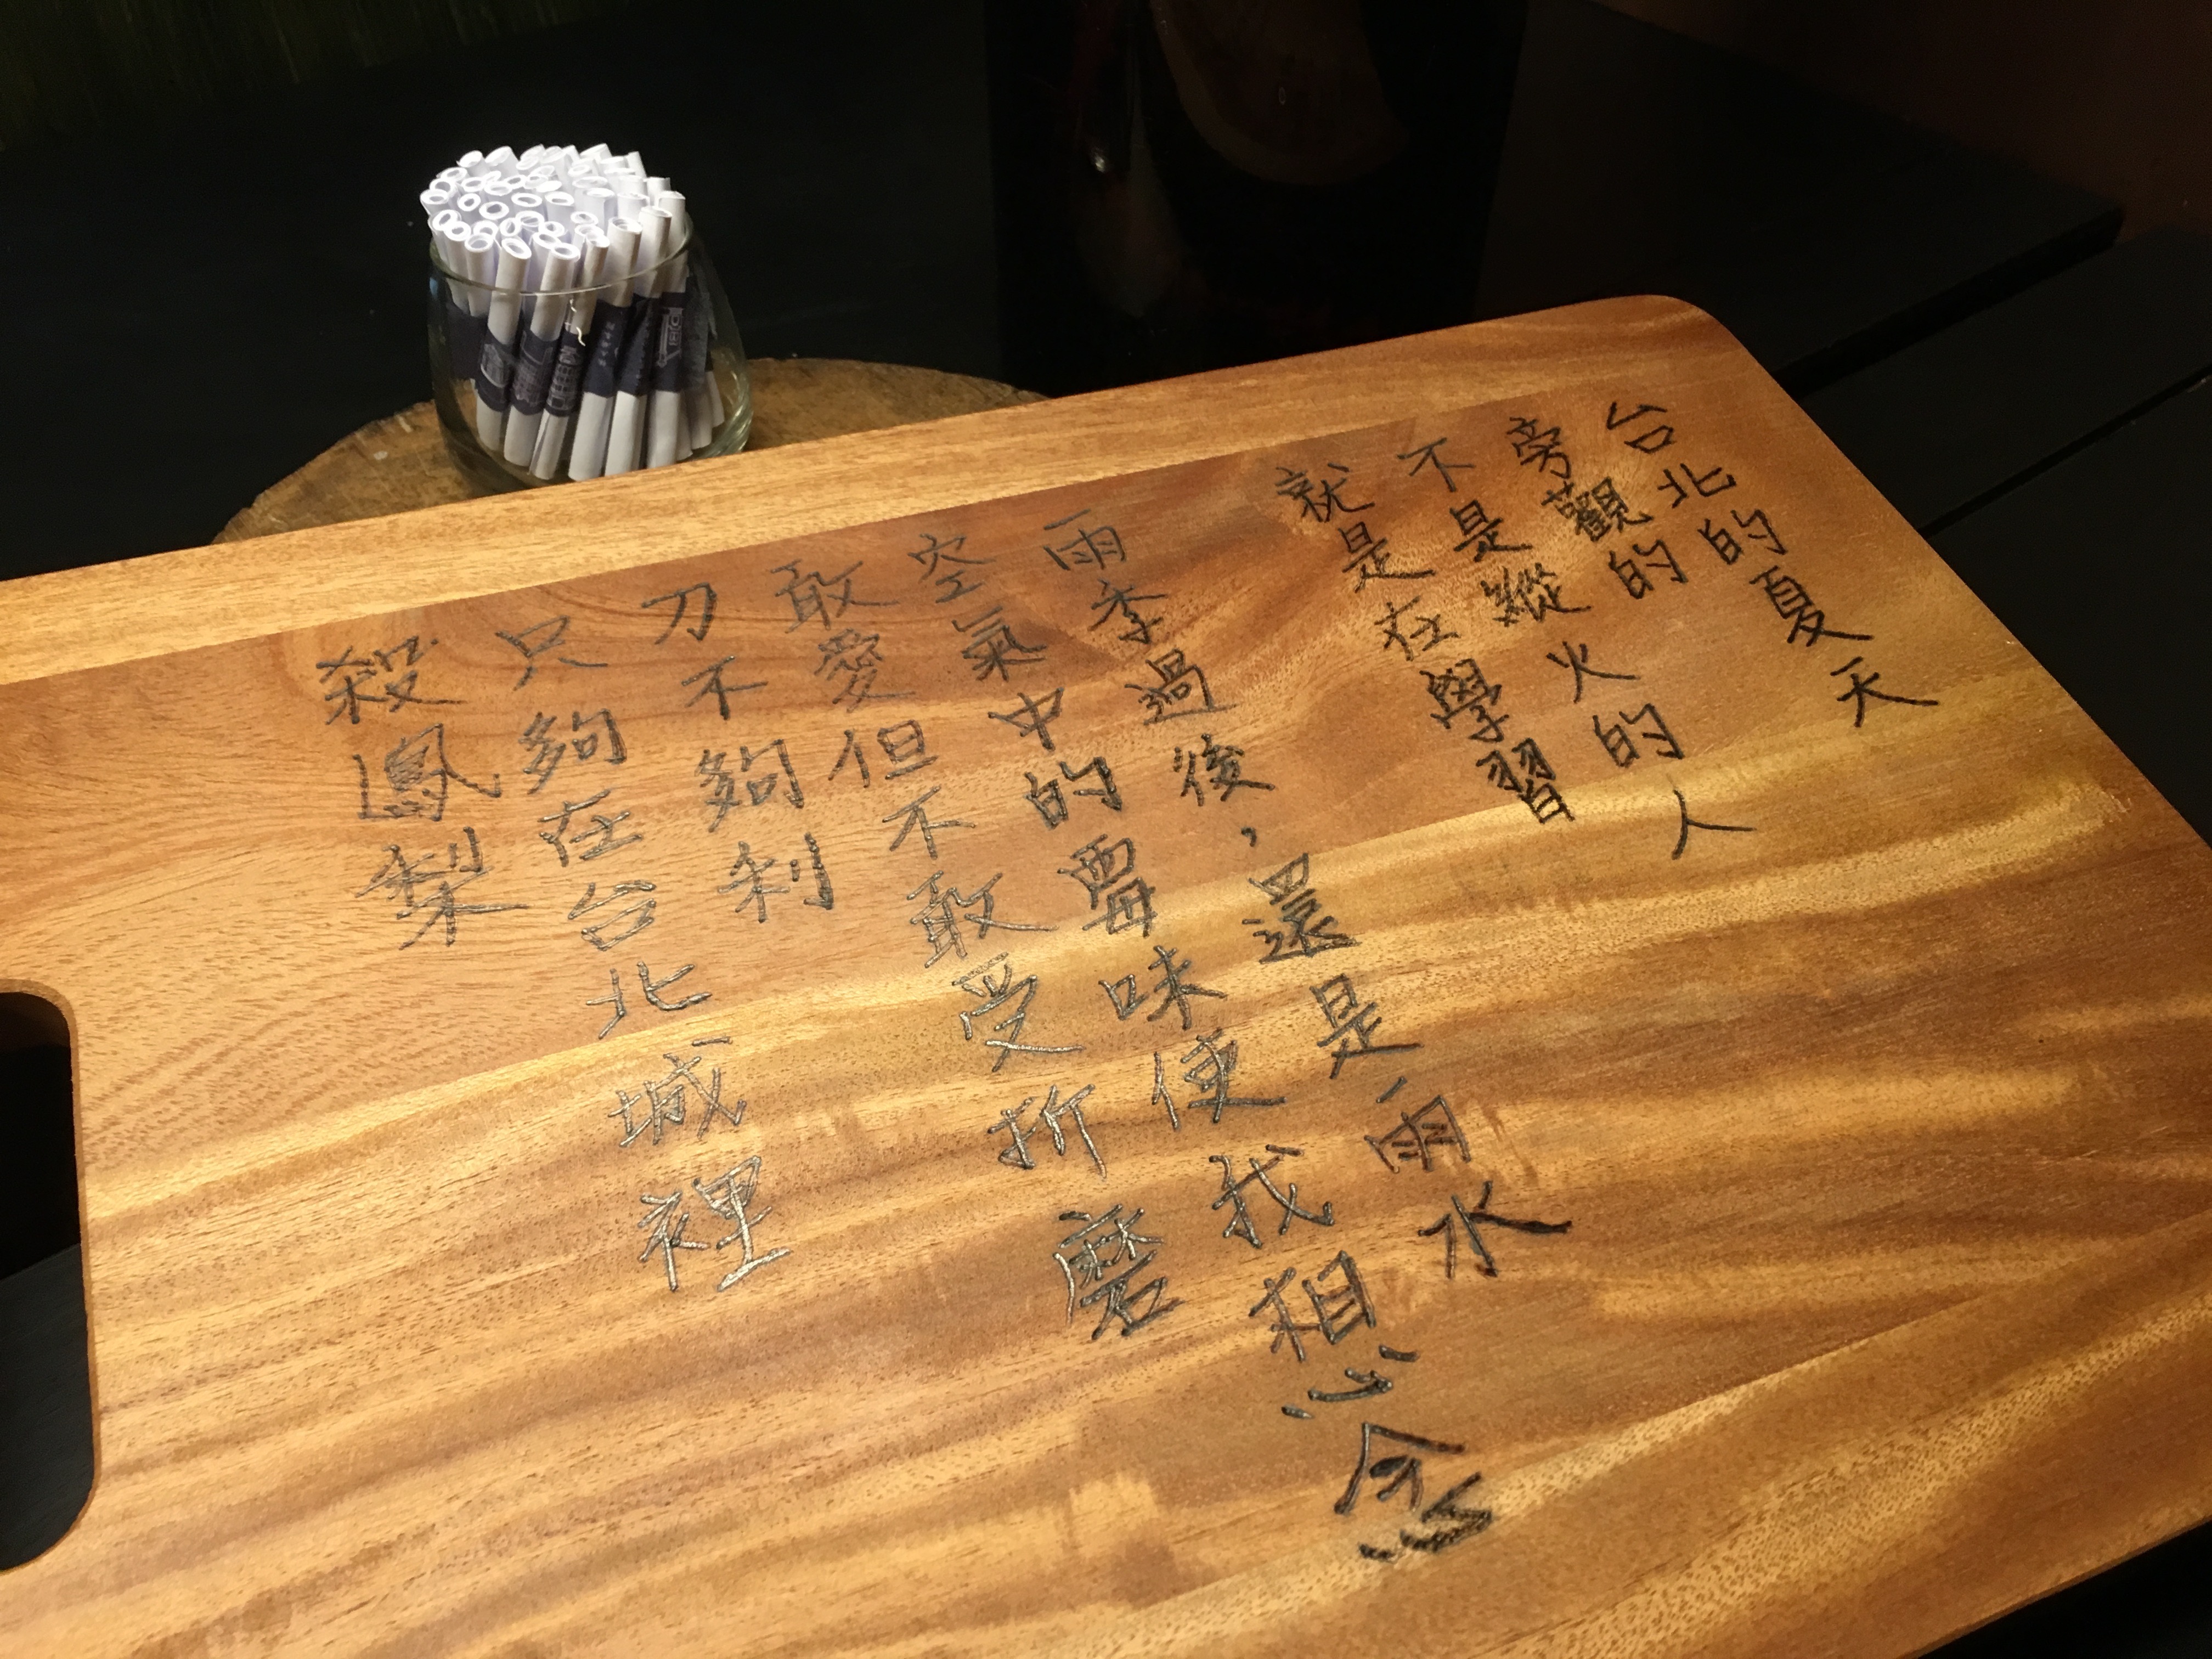 台北的夏天
旁觀的
不是縱火的人
就是在學習
雨季過後，還是雨水
空氣中的霉味使我想念
敢愛但不敢受折磨
刀不夠利
只夠在台北城裡
殺鳳梨